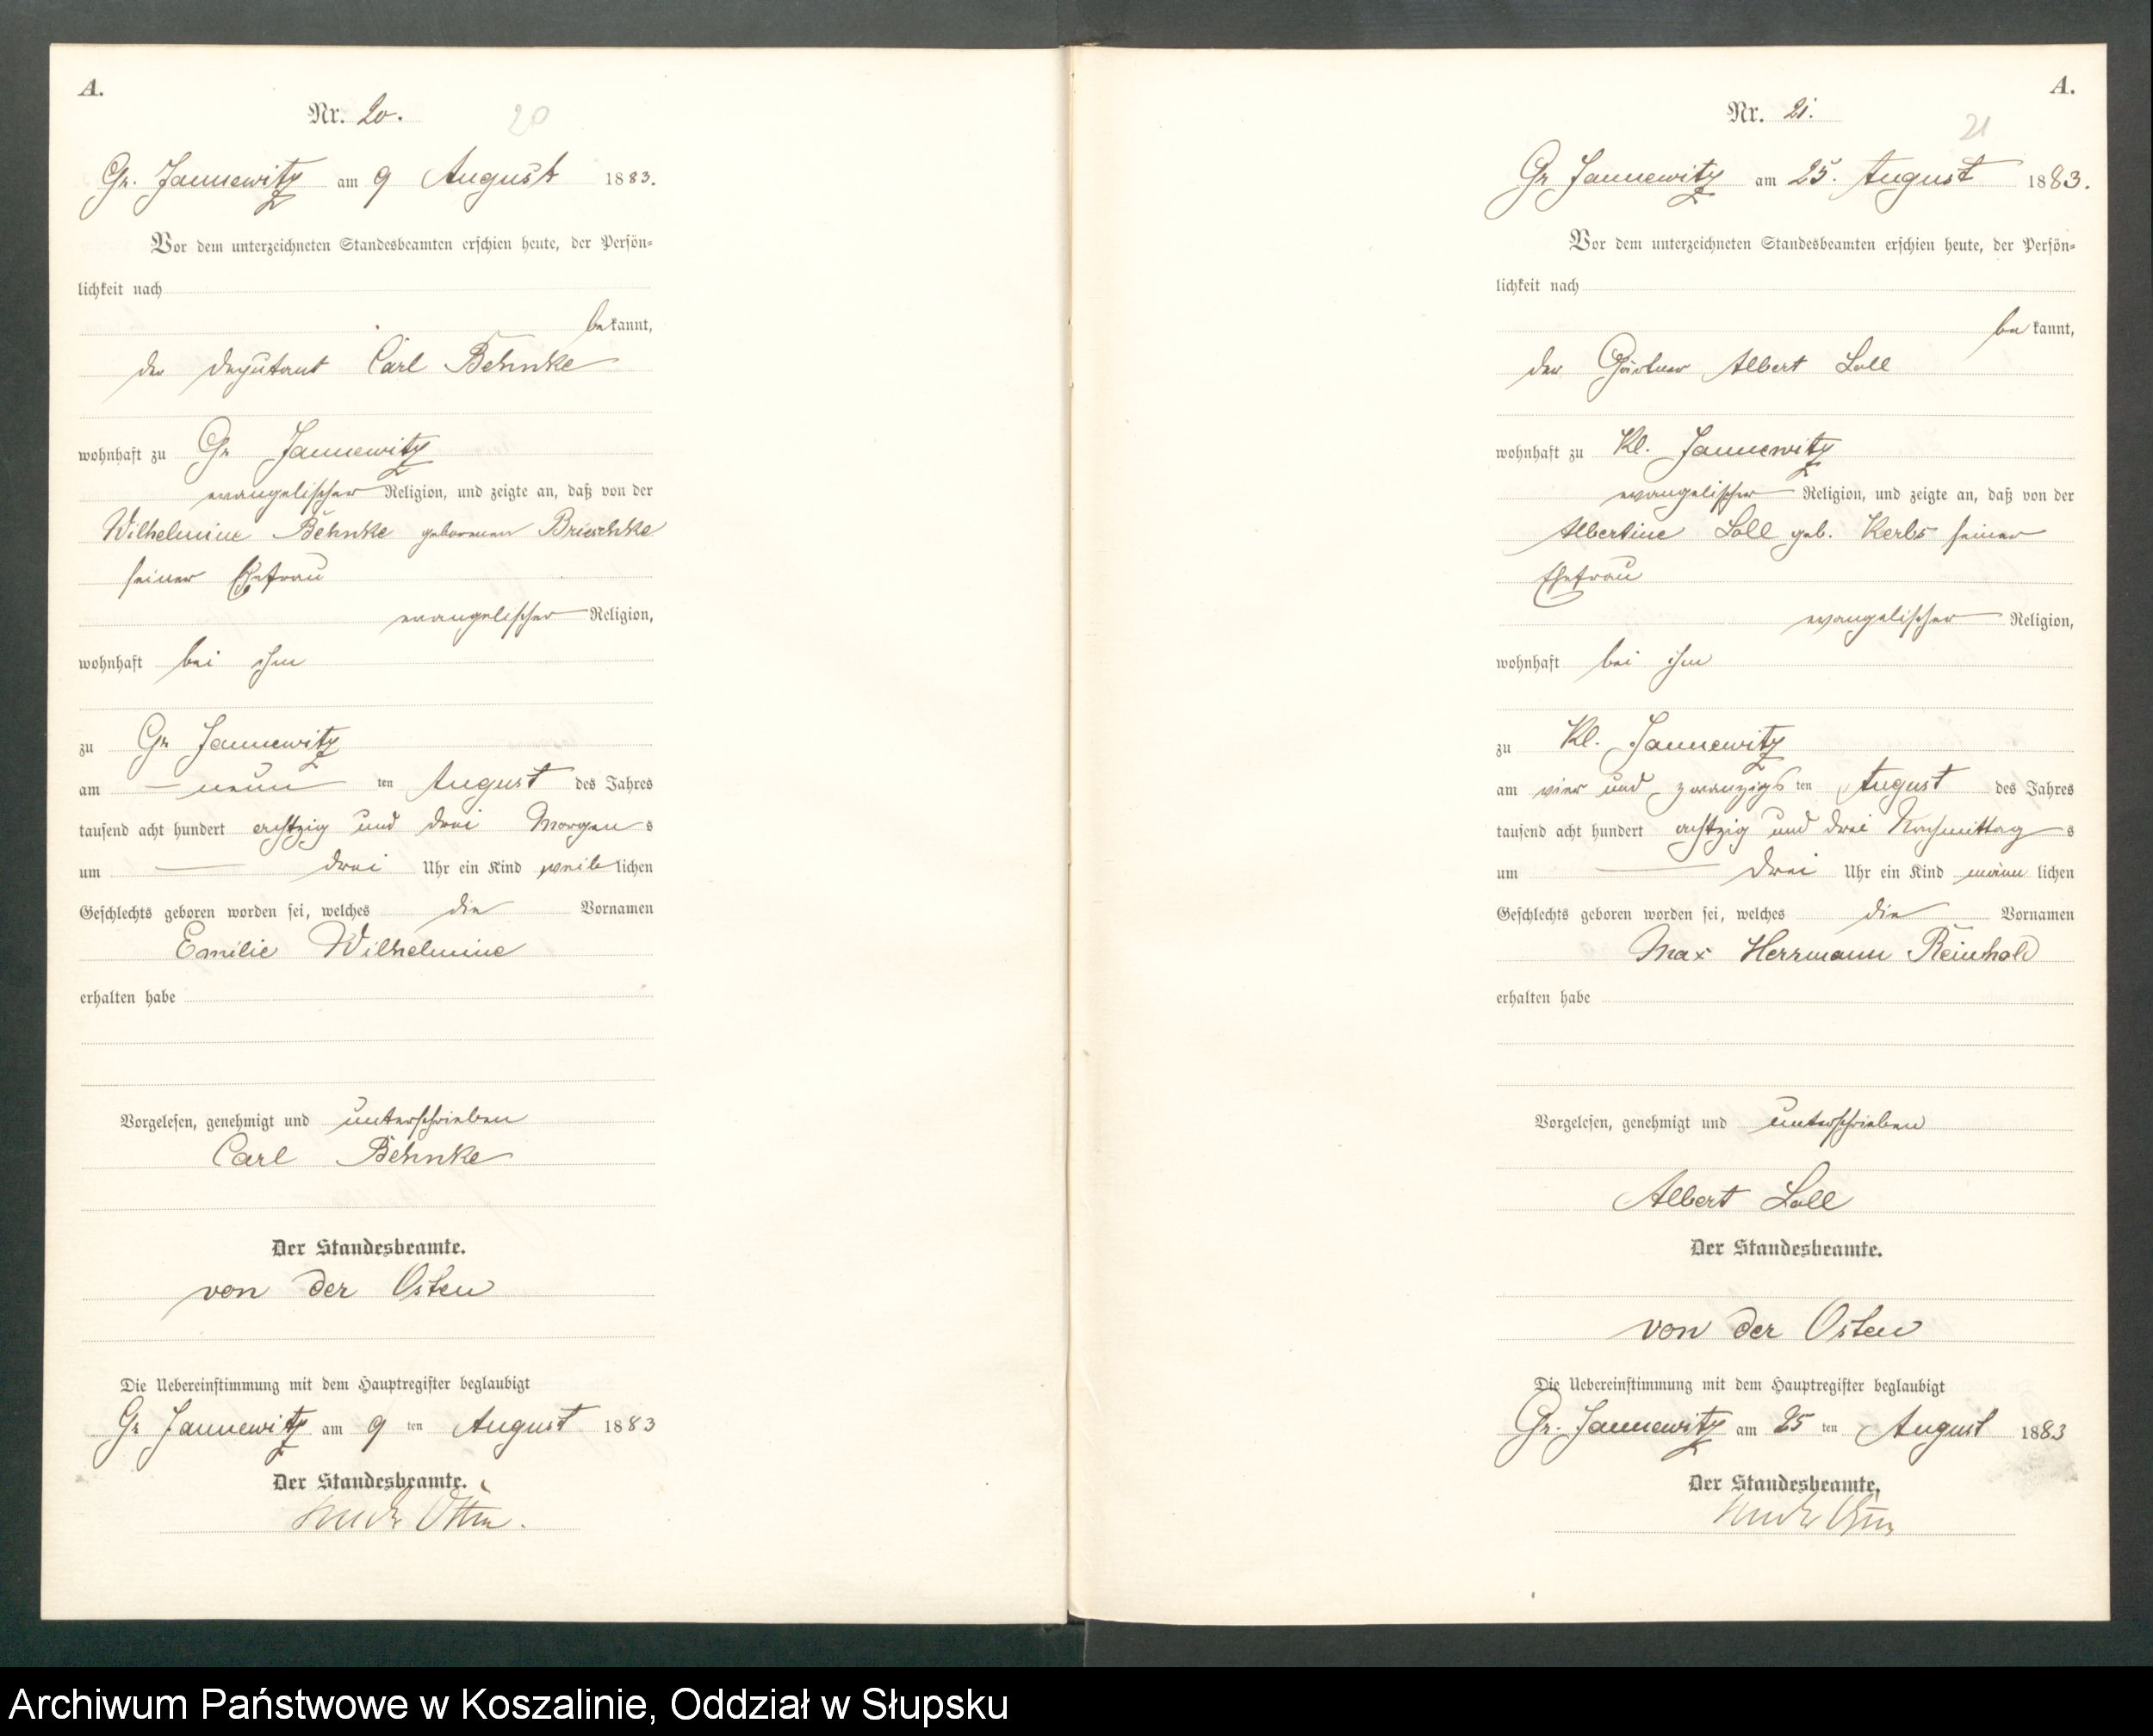 A.
Nr. 20.
20
Gr. Jannewitz am 9 August 1883.
Vor dem unterzeichneten Standesbeamten erschien heute, der Persön-
lichkeit nach
bekannt,
der Deputant Carl Behnke
wohnhaft zu Gr Jannewitz
evangelischer Religion, und zeigte an, daß von der
Wilhelmine Behnke geborenen Brieschke
seiner Ehefrau
evangelischer Religion,
wohnhaft bei ihm
zu Gr Jannewitz
am neun ten August des Jahres
tausend acht hundert achtzig und drei Morgens
um drei Uhr ein Kind weiblichen
Geschlechts geboren worden sei, welches die Vornamen
Emilie Wilhelmine
erhalten habe
Vorgelesen, genehmigt und unterschrieben
Carl Behnke
Der Standesbeamte.
von der Osten
Die Uebereinstimmung mit dem Hauptregister beglaubigt
Gr Jannewitz am 9 ten August 1883
Der Standesbeamte.
A.
Nr. 21.
21
Gr Jannewitz am 25. August 1883.
Vor dem unterzeichneten Standesbeamten erschien heute, der Persön-
lichkeit nach
bekannt,
der Gärtner Albert Loll
wohnhaft zu Kl. Jannewitz
evangelischer Religion, und zeigte an, daß von der
Albertine Loll geb. Kerbs seiner
Ehefrau
evangelischer Religion,
wohnhaft bei ihm
zu Kl. Jannewitz
am vier und zwanzigsten August des Jahres
tausend acht hundert achtzig und drei Nachmittags
um drei Uhr ein Kind männlichen
Geschlechts geboren worden sei, welches die Vornamen
Max Herrmann Reinhold
erhalten habe
Vorgelesen, genehmigt und unterschrieben
Albert Loll
Der Standesbeamte.
von der Osten
Die Uebereinstimmung mit dem Hauptregister beglaubigt
Gr. Jannewitz am 25 ten August 1883
Der Standesbeamte.
Archiwum Państwowe w Koszalinie, Oddział w Słupsku